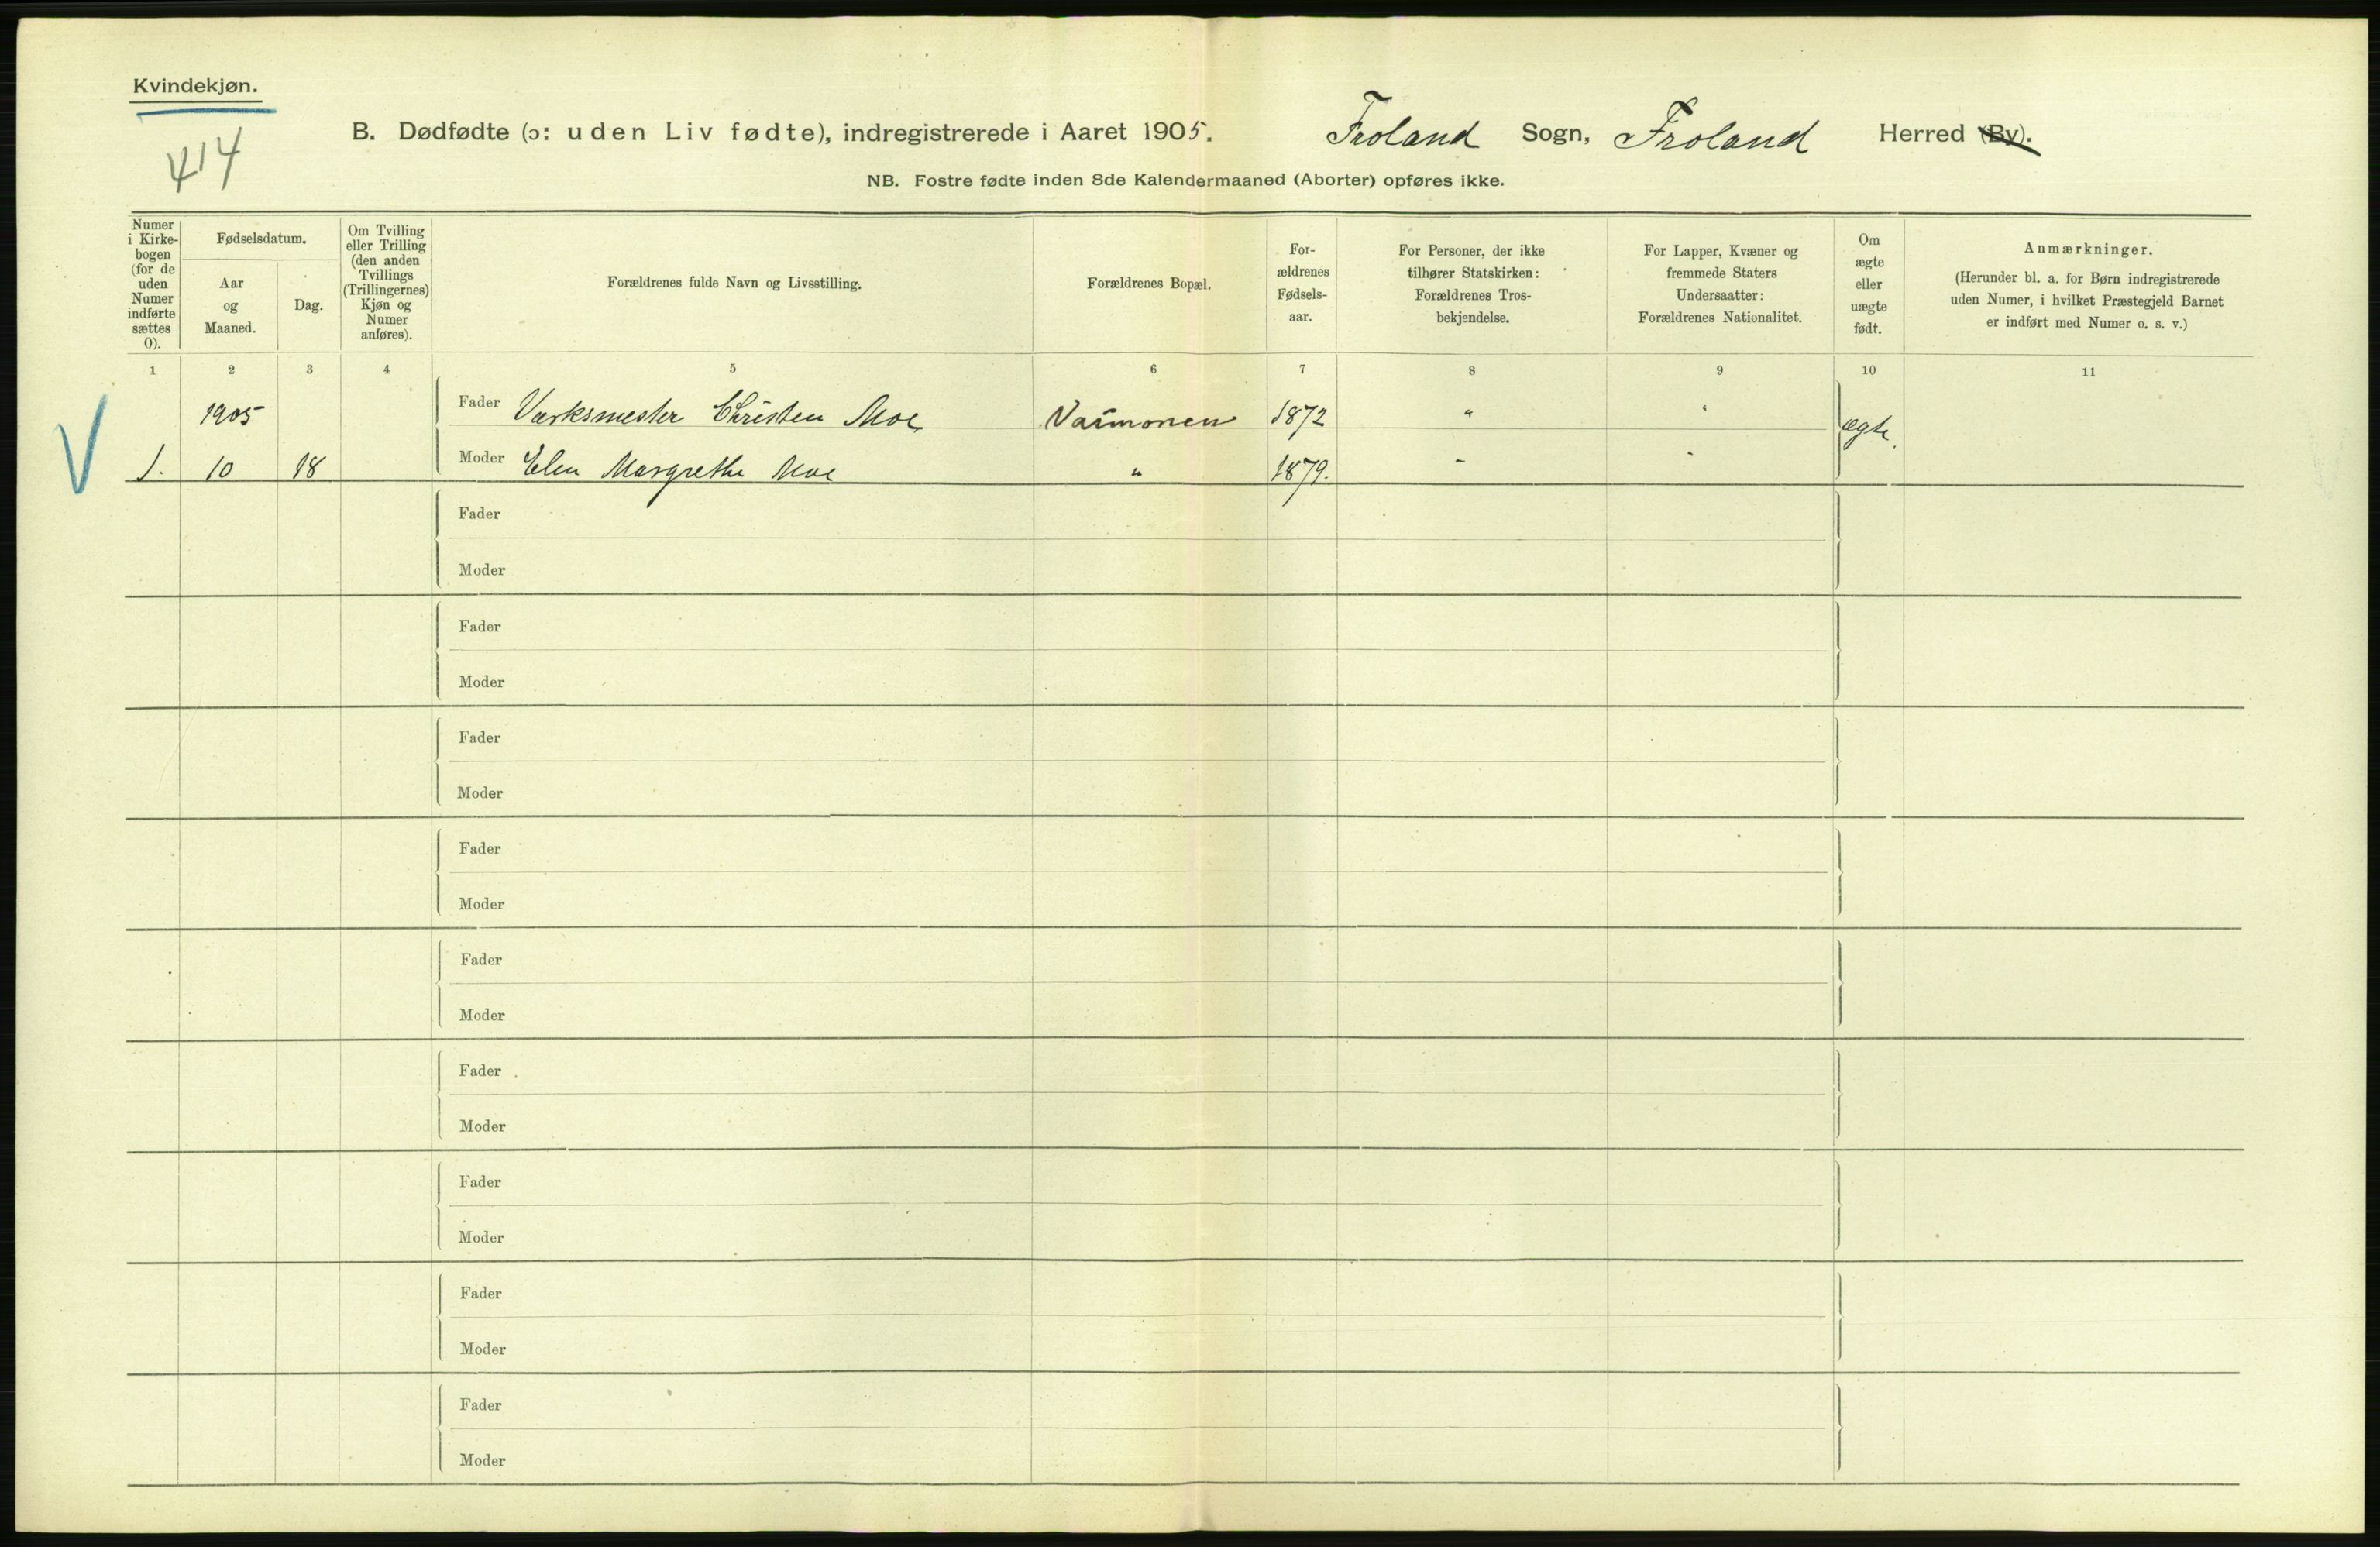 Kvindekjøn.
414
B. Dødfødte (ɔ: uden Liv fødte), indregistrerede i Aaret 1905. Froland Sogn, Froland Herred (By).
NB. Fostre fødte inden 8de Kalendermaaned (Aborter) opføres ikke.
Numer i Kirke-bogen (for de uden Numer indførte sættes 0).
Fødselsdatum.
Aar og Maaned.
Dag.
Om Tvilling eller Trilling (den anden Tvillings (Trillingernes) Kjøn og Numer anføres).
Forældrenes fulde Navn og Livsstilling.
Forældrenes Bopæl.
For-ældrenes Fødsels-aar.
For Personer, der ikke tilhører Statskirken: Forældrenes Tros-bekjendelse.
For Lapper, Kvæner og fremmede Staters Undersaatter: Forældrenes Nationalitet.
Om ægte eller uægte født.
Anmærkninger.
(Herunder bl. a. for Børn indregistrerede uden Numer, i hvilket Præstegjeld Barnet er indført med Numer o. s. v.)
1 2 3 4 5 6 7 8 9 10 11
1905 Fader Værksmester Christen Moe 1872 " " ægte.
1. 10 18 Moder Elen Margrethe Moe " 1879. " "
Fader
Moder
Fader
Moder
Fader
Moder
Fader
Moder
Fader
Moder
Fader
Moder
Fader
Moder
Fader
Moder
Fader
Moder